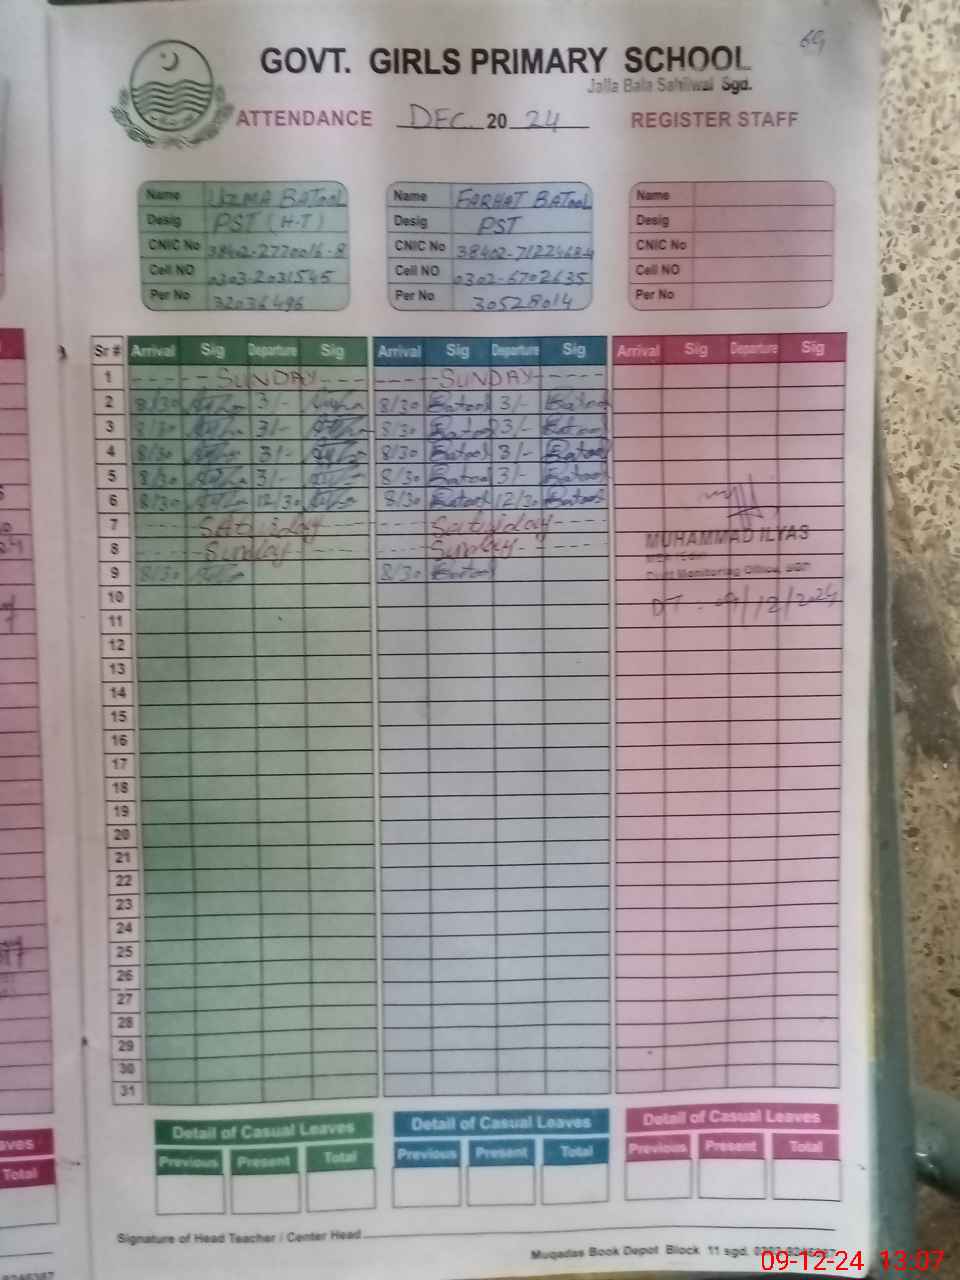 69
GOVT. GIRLS PRIMARY SCHOOL
Jalla Bala Sahiwal Sgd.
ATTENDANCE DEC. 2024 REGISTER STAFF
Name UZMA BATOOL Name FARHAT BATOOL Name
Desig PST (H-T) Desig PST Desig
CNIC No 38402-2770016-8 CNIC No 38402-7122468-4 CNIC No
Cell NO 0303-2031545 Cell NO 0302-6702635 Cell NO
Per No 32036496 Per No 30528014 Per No
Sr # Arrival Sig Departure Sig Arrival Sig Departure Sig Arrival Sig Departure Sig
1 ---- SUNDAY --- ---- SUNDAY ----
2 8/30 3/- 8/30 Batool 3/- Batool
3 8/30 3/- 8/30 Batool 3/- Batool
4 8/30 3/- 8/30 Batool 3/- Batool
5 8/30 3/- 8/30 Batool 3/- Batool
6 8/30 12/30 8/30 Batool 12/30 Batool
7 Saturday Saturday
8 Sunday Sunday
MUHAMMAD ILYAS
9 8/30 8/30 Batool
10 DT. 09/12/2024
11
12
13
14
15
16
17
18
19
20
21
22
23
24
25
26
27
28
29
30
31
Detail of Casual Leaves Detail of Casual Leaves Detail of Casual Leaves
Previous Present Total Previous Present Total Previous Present Total
Signature of Head Teacher / Center Head
Muqadas Book Depot Block 11 sgd.
09-12-24 13:07
aves
Total